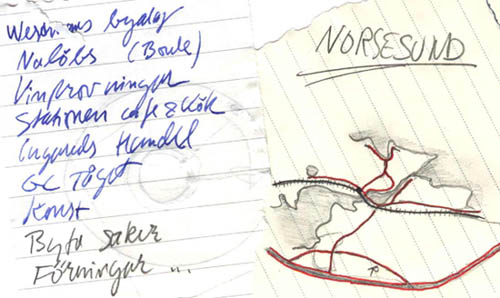 byalag
Nalöbs (Boule)
Vinprovningar
Stationen café & Kök
Ingareds Handel
GC Tåget
Konst
Byta saker
Förningar ...
NORSESUND